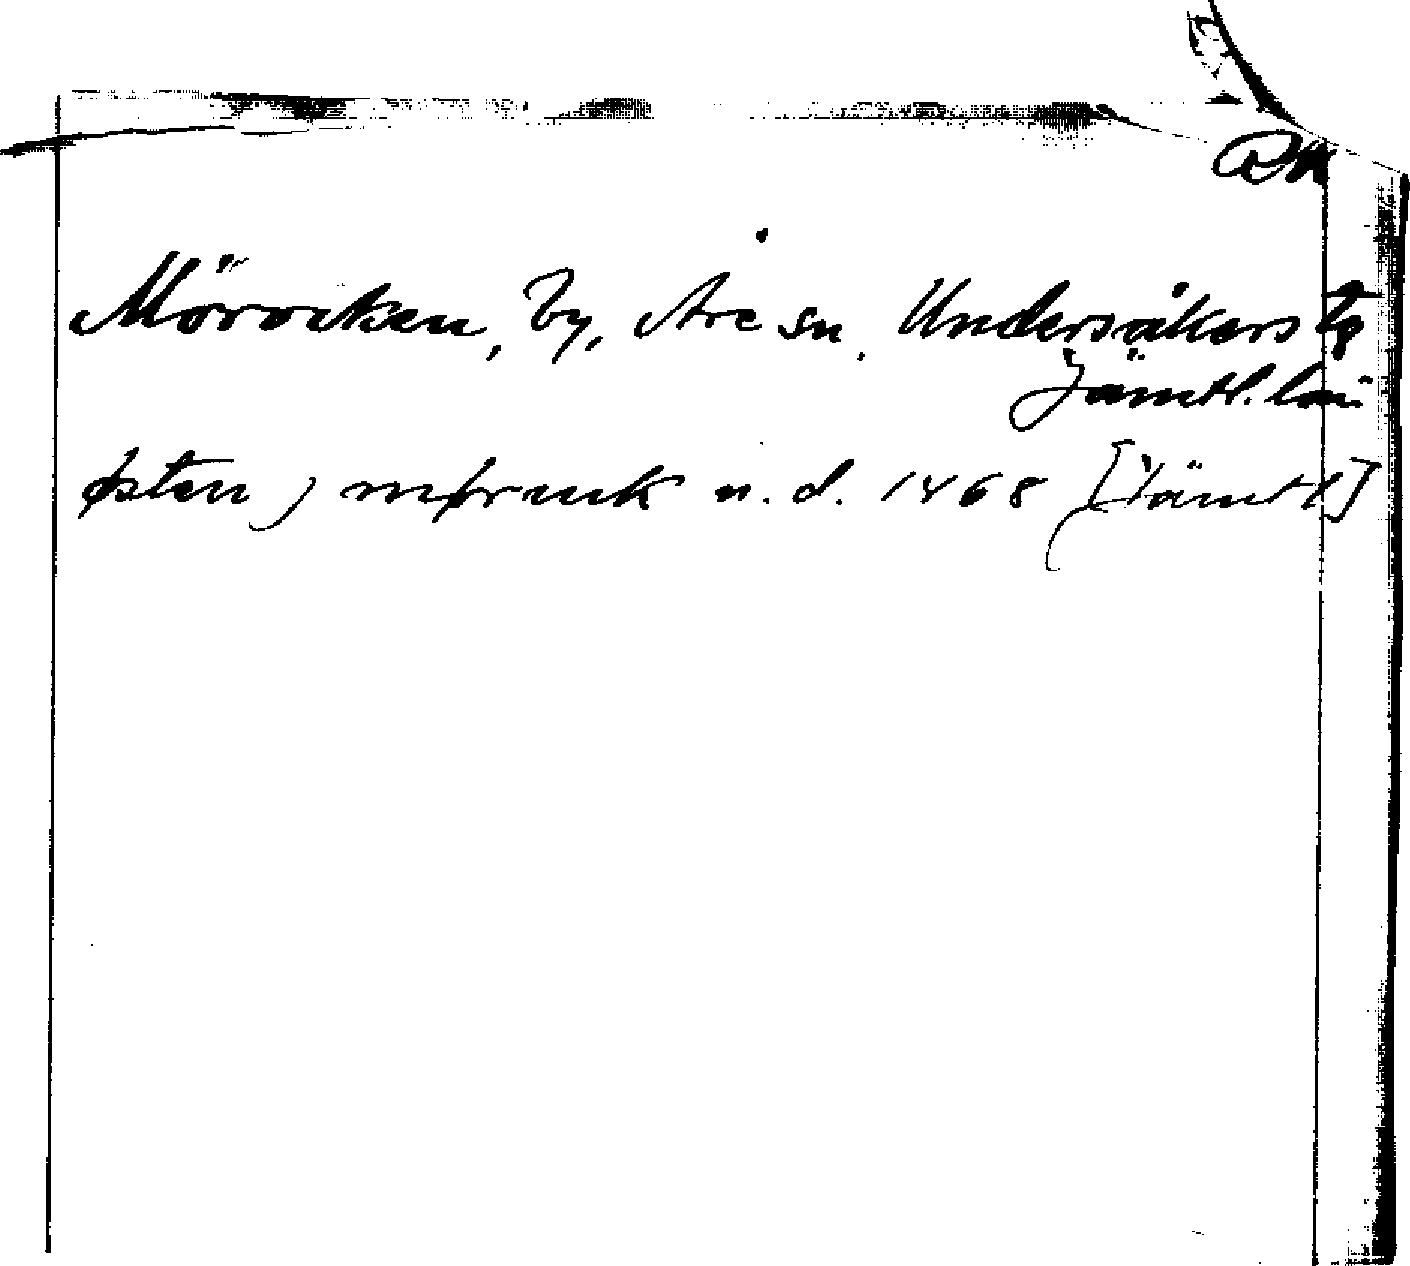 Mörviken, by, Åre sn, Undersåkers tg
Jämtl. län
østen j mørvik u. d. 1468 [Jämtl]